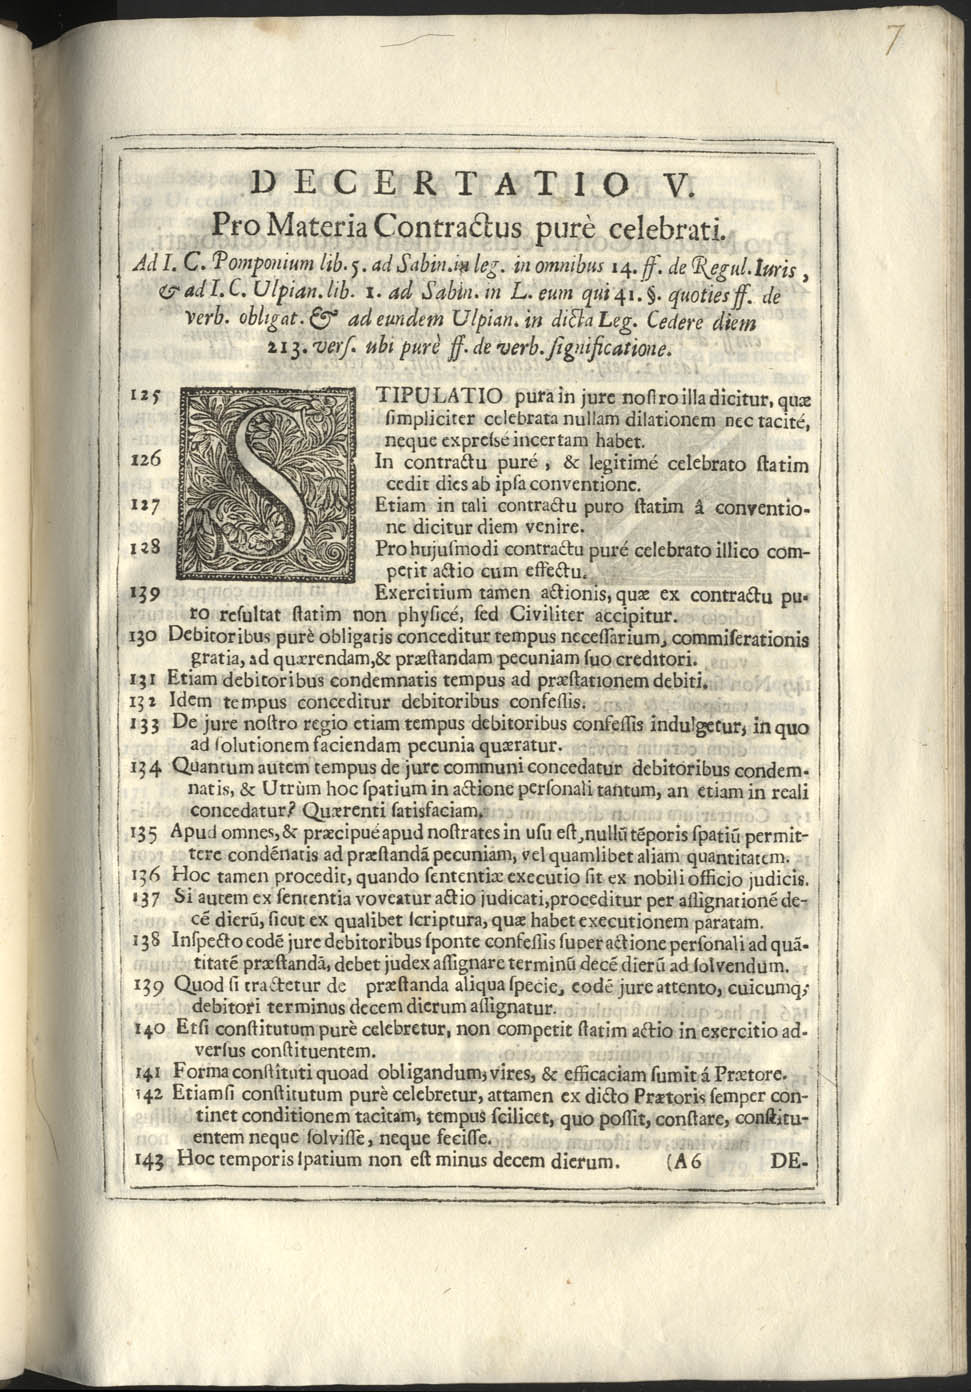 7
DECERTATIO V.
Pro Materia Contractus purè celebrati.
Ad I. C. Pomponium lib. 5. ad Sabin. in leg. in omnibus 14. ff. de Regul. Iuris,
& ad I. C. Ulpian. lib. 1. ad Sabin. in L. eum qui 41. §. quoties ff. de
verb. obligat. & ad eundem Ulpian. in dicta Leg. Cedere diem
213. vers. ubi purè ff. de verb. significatione.
125 STIPULATIO pura in jure nostro illa dicitur, quæ
simpliciter celebrata nullam dilationem nec tacité,
neque expressé incertam habet.
126 In contractu puré, & legitimé celebrato statim
cedit dies ab ipsa conventione.
127 Etiam in tali contractu puro statim â conventio-
ne dicitur diem venire.
128 Pro hujusmodi contractu puré celebrato illico com-
petit actio cum effectu.
139 Exercitium tamen actionis, quæ ex contractu pu-
ro resultat statim non physicé, sed Civiliter accipitur.
130 Debitoribus purè obligatis conceditur tempus necessarium, commiserationis
gratia, ad quærendam, & præstandam pecuniam suo creditori.
131 Etiam debitoribus condemnatis tempus ad præstationem debiti.
132 Idem tempus conceditur debitoribus confessis.
133 De jure nostro regio etiam tempus debitoribus confessis indulgetur, in quo
ad solutionem faciendam pecunia quæratur.
134 Quantum autem tempus de jure communi concedatur debitoribus condem-
natis, & Utrùm hoc spatium in actione personali tantum, an etiam in reali
concedatur? Quærenti satisfaciam.
135 Apud omnes, & præcipué apud nostrates in usu est, nullũ tẽporis spatiũ permit-
tere condẽnatis ad præstandã pecuniam, vel quamlibet aliam quantitatem.
136 Hoc tamen procedit, quando sententiæ executio sit ex nobili officio judicis.
137 Si autem ex sententia voveatur actio judicati, proceditur per assignationẽ de-
cẽ dierũ, sicut ex qualibet scriptura, quæ habet executionem paratam.
138 Inspecto eodẽ jure debitoribus sponte confessis super actione personali ad quã-
titatẽ præstandã, debet judex assignare terminũ decẽ dierũ ad solvendum.
139 Quod si tractetur de præstanda aliqua specie, eodẽ jure attento, cuicumq;
debitori terminus decem dierum assignatur.
140 Etsi constitutum purè celebretur, non competit statim actio in exercitio ad-
versus constituentem.
141 Forma constituti quoad obligandum, vires, & efficaciam sumit á Prætore.
142 Etiamsi constitutum purè celebretur, attamen ex dicto Prætoris semper con-
tinet conditionem tacitam, tempus scilicet, quo possit, constare, constitu-
entem neque solvisse, neque fecisse.
143 Hoc temporis spatium non est minus decem dierum. (A6 DE-